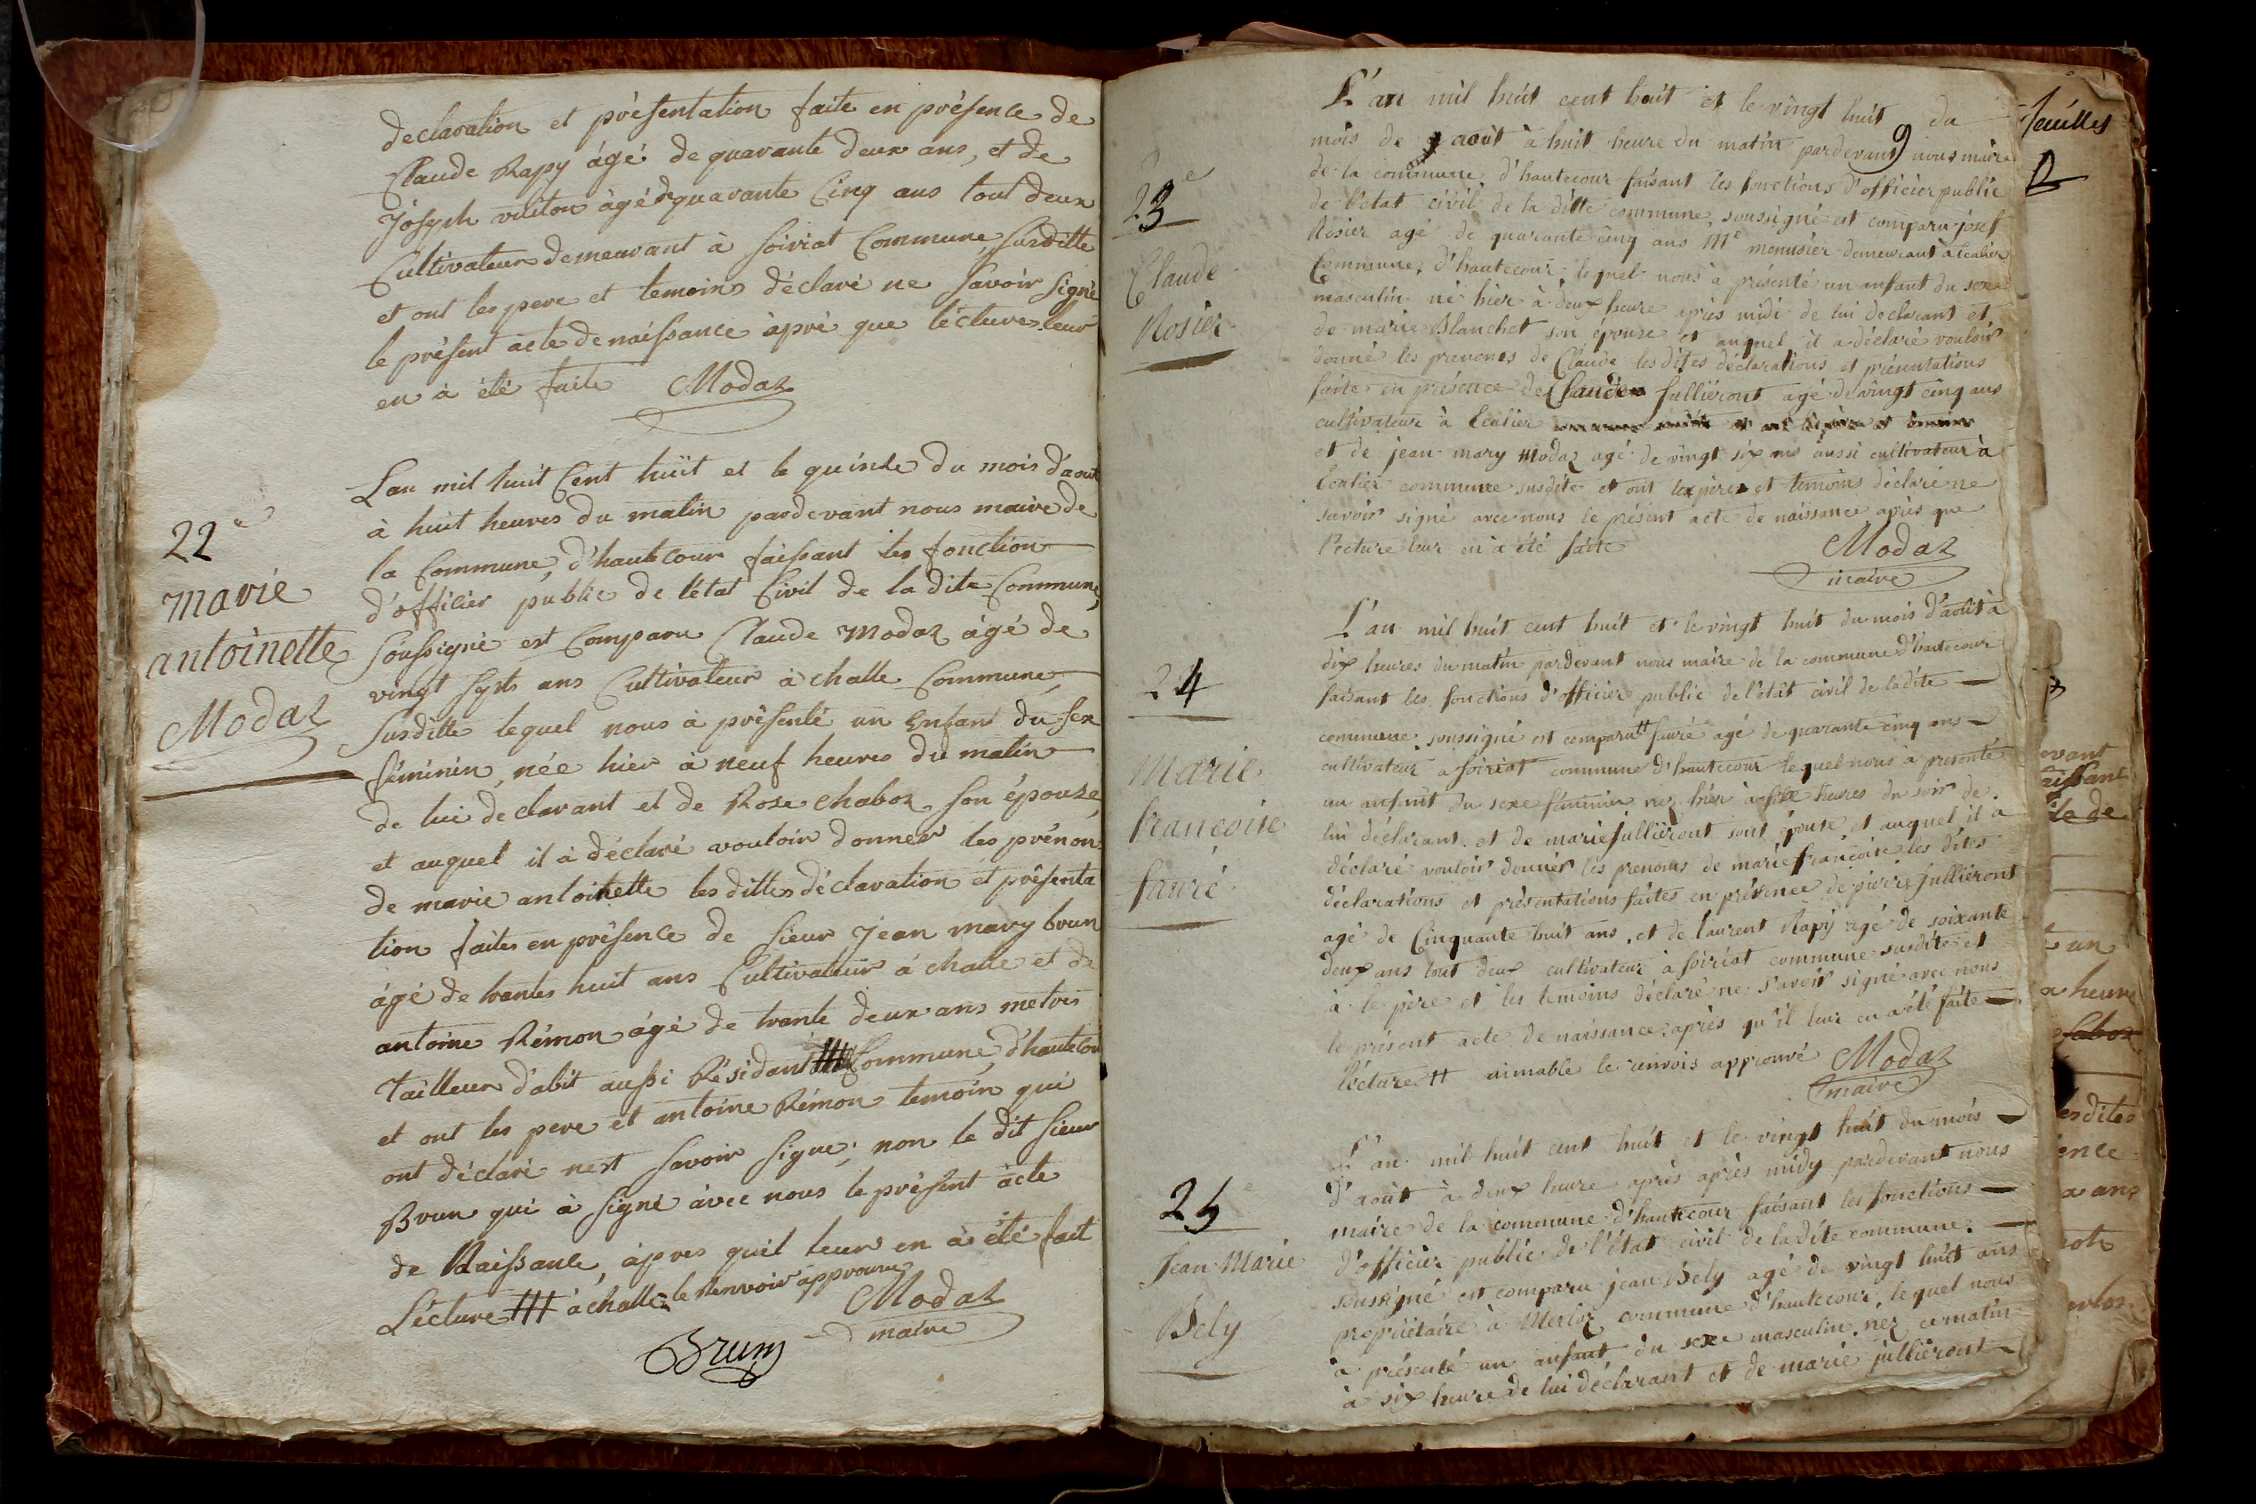 declaration et présentation faite en présence de
Claude Rapy âgé de quarante deux ans, et de
Joseph âgé de quarante Cinq ans tout deux
Cultivateur demeurant à Soiriat Commune, Susditte
et ont les pere et temoins déclaré ne Savoir Signé
le présent acte de naissance àpré que lécture leur
en à été faite Modaz
22e
marie
antoinette
Modaz
Lan mil huit Cent huit et le quinze du mois d'aout
à huit heures du matin pardevant nous maire de
la Commune, d'hautcour faissant les fonction
d'officier public de létat Civil de la dite Commune,
Soussigné est Comparu Claude Modaz âgé de
vingt Sept ans Cultivateur à challe Commune
Susditte lequel nous à présenté un Enfant du Sex
féminin, née hier à neuf heures du matin
de lui declarant et de Rose chaboz Son épouse,
et auquel il à déclaré vouloir donner les prénon
de marie antoinette les dittes déclaration et présenta
tion faites en présence de Sieur Jean mary brun
âgé de trante huit ans Cultivateur à challe et de
antoine Rémon âgé de trante deux ans metres
tailleur d'abit aussi Résidant ⧻ Commune, d'hautcour
et ont les pere et antoine Rémon temoin qui
ont déclaré nest Savoir Signe, non le dit Sieur
Brun qui à Signé àvec nous le présent àcte
de Naissance, àpres quil leur en à été fait
Lécture ⧻ à challe le Renvoir approuvé
Modaz
maire
Brun
9
23e
Claude
Rosier
L'an mil huit cent huit et le vingt huit du
mois de août à huit heure du matin pardevant nous maire
de la commune d'hautecour faisant les fonctions d'officier public
de l'état civil de la ditte commune, soussigné est comparu josef
Rosier agé de quarante cinq ans Me menusier demeurant à
Commune, d'hautecour lequel nous à présenté un anfant du sexe
masculin né hier à deux heure après midi de lui declarant et
de marie Blanchet son épouze et auquel il a déclaré vouloir
donné les prenoms de Claude les dites déclarations et présentations
faite en présence de Claude Jullieront agé de vingt cinq ans
cultivateur à
et de jean mary Modaz agé de vingt six ans aussi cultivateur à
commune susdite et ont les père et temoins déclaré ne
savoir signé avec nous le présent acte de naissance après que
l'ecture leur en a été faite
Modaz
maire
24
marie
francoise
fauré
L'an mil huit cent huit et le vingt huit du mois d'août à
dix heures du matin pardevant nous maire de la commune d'hautecour
faisant les fonctions d'officier public de l'état civil de la dite
commune, soussigné est comparu ⧺ fauré agé de quarante cinq ans
cultivateur a soiriat commune d'hautecour lequel nous à présenté
un anfant du sexe féminin nez hier à six heures du soir de
lui déclarant et de marie jullieront sont épouse et auquel il a
déclaré vouloir donner les prenoms de marie françoise les dites
déclarations et présentations faites en présence de pierre jullieront
agé de Cinquante huit ans, et de laurent Rapy agé de soixante
deux ans tout deux cultivateur à soiriat commune susdite et
à le père et les temoins déclaré ne s'avoir signé avec nous
le présent acte de naissance après qu'il leur en a été faite
lécture ⧺ aimable le renvois approuvé Modaz
maire
25e
Jean Marie
Bely
L'an mil huit cent huit et le vingt huit du mois
d'août à deux heure après après midy pardevant nous
maire de la commune d'hautecour faisant les fonctions
d'officier public de l'état civil de la dite commune.
soussigné est comparu jean Bely agé de vingt huit ans
propriétaire à Merloz commune d'hautecour, lequel nous
à présenté un anfant du sexe masculin nez ce matin
à six heure de lui déclarant et de marie jullieront
feuillet
evant
aissant
ile de
un
a heure
chaboz
es dites
ence
a ans